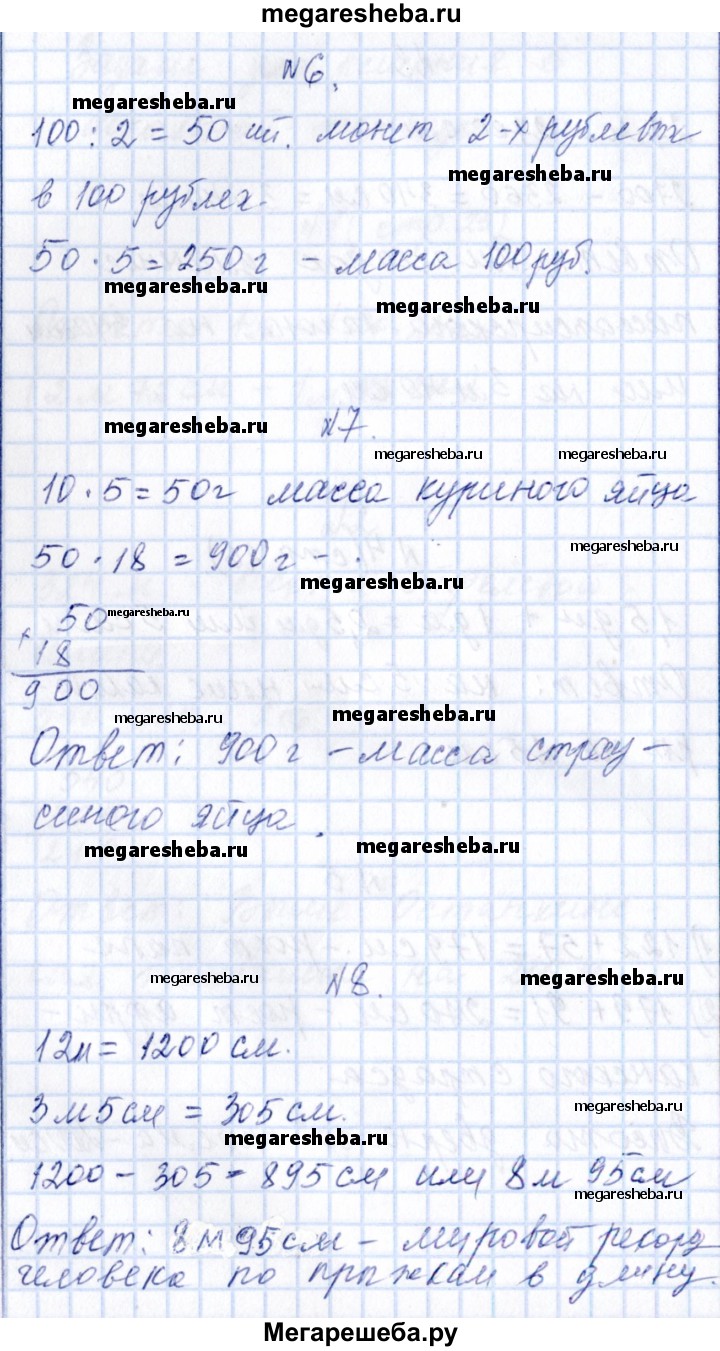 megaresheba.ru
№6.
megaresheba.ru
100 : 2 = 50 шт. монет 2-х рублевых
megaresheba.ru
в 100 рублех.
50 · 5 = 250 г - масса 100 руб.
megaresheba.ru
megaresheba.ru
megaresheba.ru
№7.
megaresheba.ru
megaresheba.ru
10 · 5 = 50 г масса куриного яйца
megaresheba.ru
50 · 18 = 900 г - .
megaresheba.ru
50
megaresheba.ru
× 18
900
megaresheba.ru
megaresheba.ru
Ответ: 900 г - масса страу-
синого яйца.
megaresheba.ru
megaresheba.ru
megaresheba.ru
№8.
megaresheba.ru
12м = 1200 см.
3 м 5 см = 305 см.
megaresheba.ru
megaresheba.ru
1200 - 305 = 895 см или 8 м 95 см
megaresheba.ru
Ответ: 8 м 95 см - мировой рекорд
человека по прыжкам в длину.
megaresheba.ru
Мегарешеба.ру